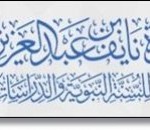 نايف بن عبدالعزيز
للسنة النبوية والدراسات